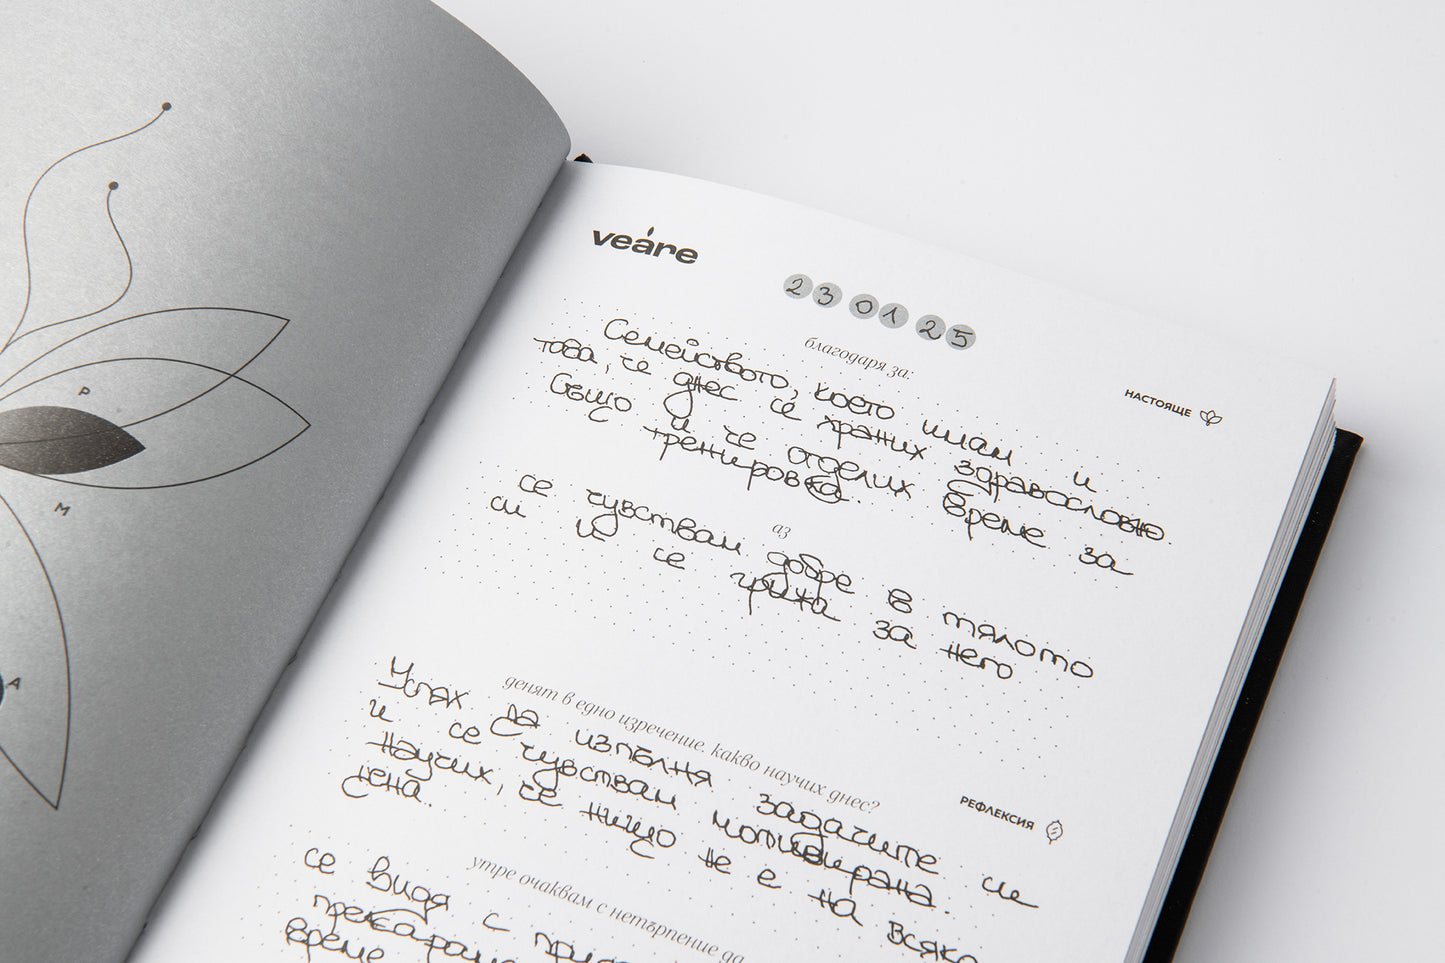 P
M
A
veáre
23 01 25
благодаря за:
НАСТОЯЩЕ
Семейството, което имам и
това, че днес се храних здравословно.
Също и че отделих време за
тренировка.
аз
се чувствам добре в тялото
си и се грижа за него
денят в едно изречение. какво научих днес?
РЕФЛЕКСИЯ
Успях да изпълня задачите си
и се чувствам мотивирана.
Научих, че нищо не е на всяка
цена.
утре очаквам с нетърпение да
се видя с
време